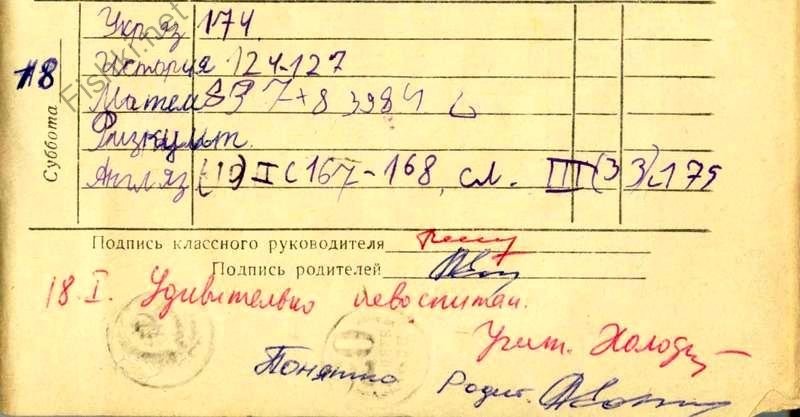 Укр яз 174.
18
История 124-127
Матем 837+8 3984
Физкульт.
Англ яз (10) I с 167-168, сл. III (33) с 175
Суббота
Подпись классного руководителя
Подпись родителей
18 I. Удивительно невоспитан.
Учит. Холод
Понятно Родит.
Fishki.net